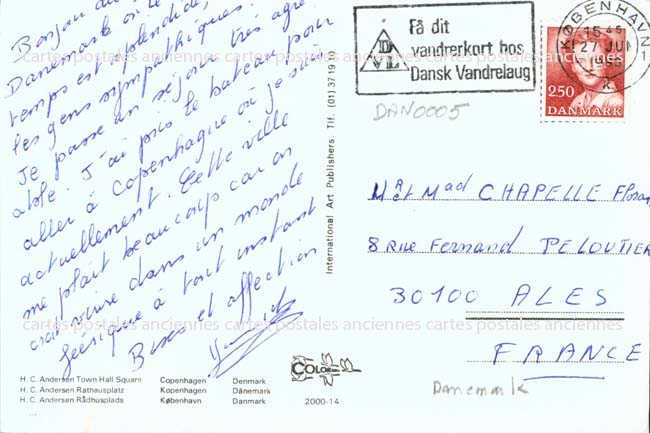 Bonjour du
Danemark où le
temps est splendide,
les gens sympathiques.
Je passe un séjour très agré-
able. J'ai pris le bateau pour
aller à Copenhague où je suis
actuellement. Cette ville
me plaît beaucoup car on
croit vivre dans un monde
féerique à tout instant
Bises et affection
Få dit
vandrerkort hos
Dansk Vandrelaug
KØBENHAVN
1545
27 JUN
250
DANMARK
DAN0005
International Art Publishers Tlf. (01) 37 19 10
Mr et Mad CHAPELLE
8 Rue Fernand PELOUTIER
30100 ALES
FRANCE
Danemark
cartes postales anciennes cartes postales anciennes cartes postales anciennes
H. C. Andersen Town Hall Square Copenhagen Denmark
H. C. Andersen Rathausplatz Kopenhagen Dänemark
H. C. Andersen Rådhusplads København Danmark
COLORAMA
2000-14